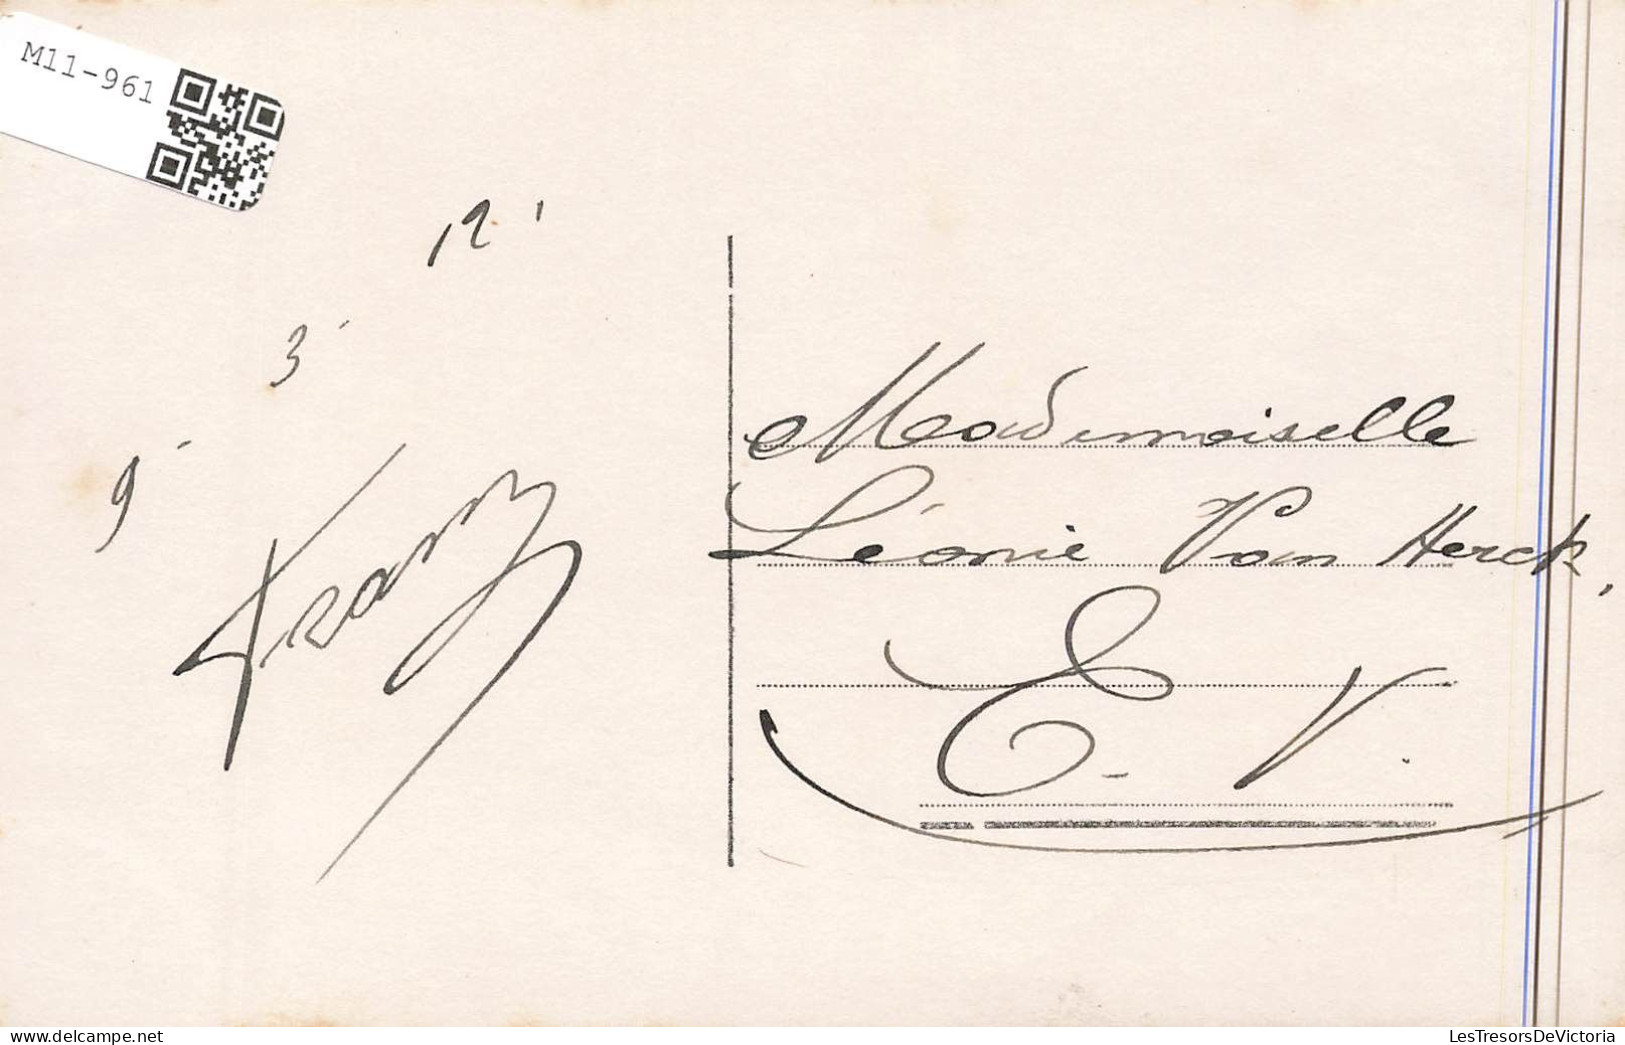 M11-961
12'
3'
9'
Franz
Mademoiselle
Léonie Van Herck,
E. V.
delcampe.net
LesTresorsDeVictoria